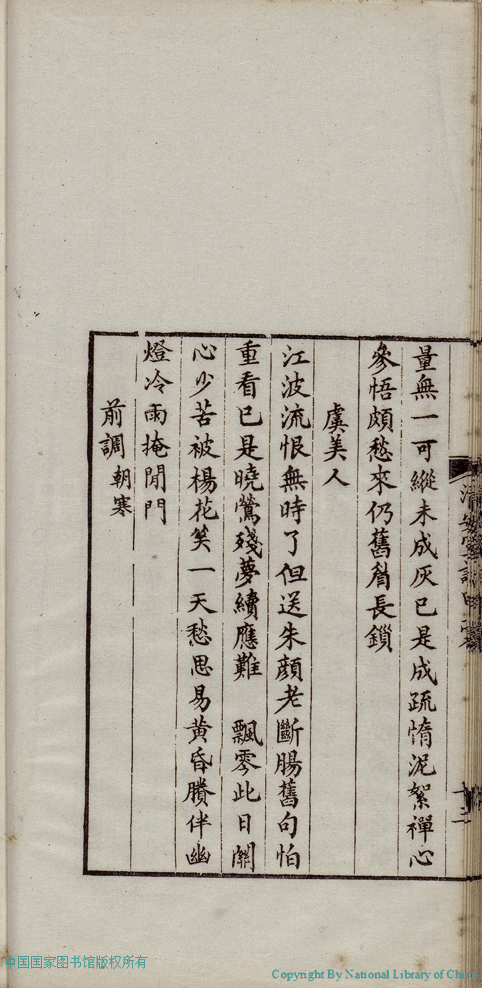 量無一可縱未成灰已是成疏惰泥絮禪心
參悟頗愁來仍舊眉長鎖
虞美人
江波流恨無時了但送朱顏老斷腸舊句怕
重看已是曉鶯殘夢續應難　飄零此日關
心少苦被楊花笑一天愁思易黃昏賸伴幽
燈冷雨掩閒門
前調 朝寒
十二
中国国家图书馆版权所有
Copyright By National Library of China